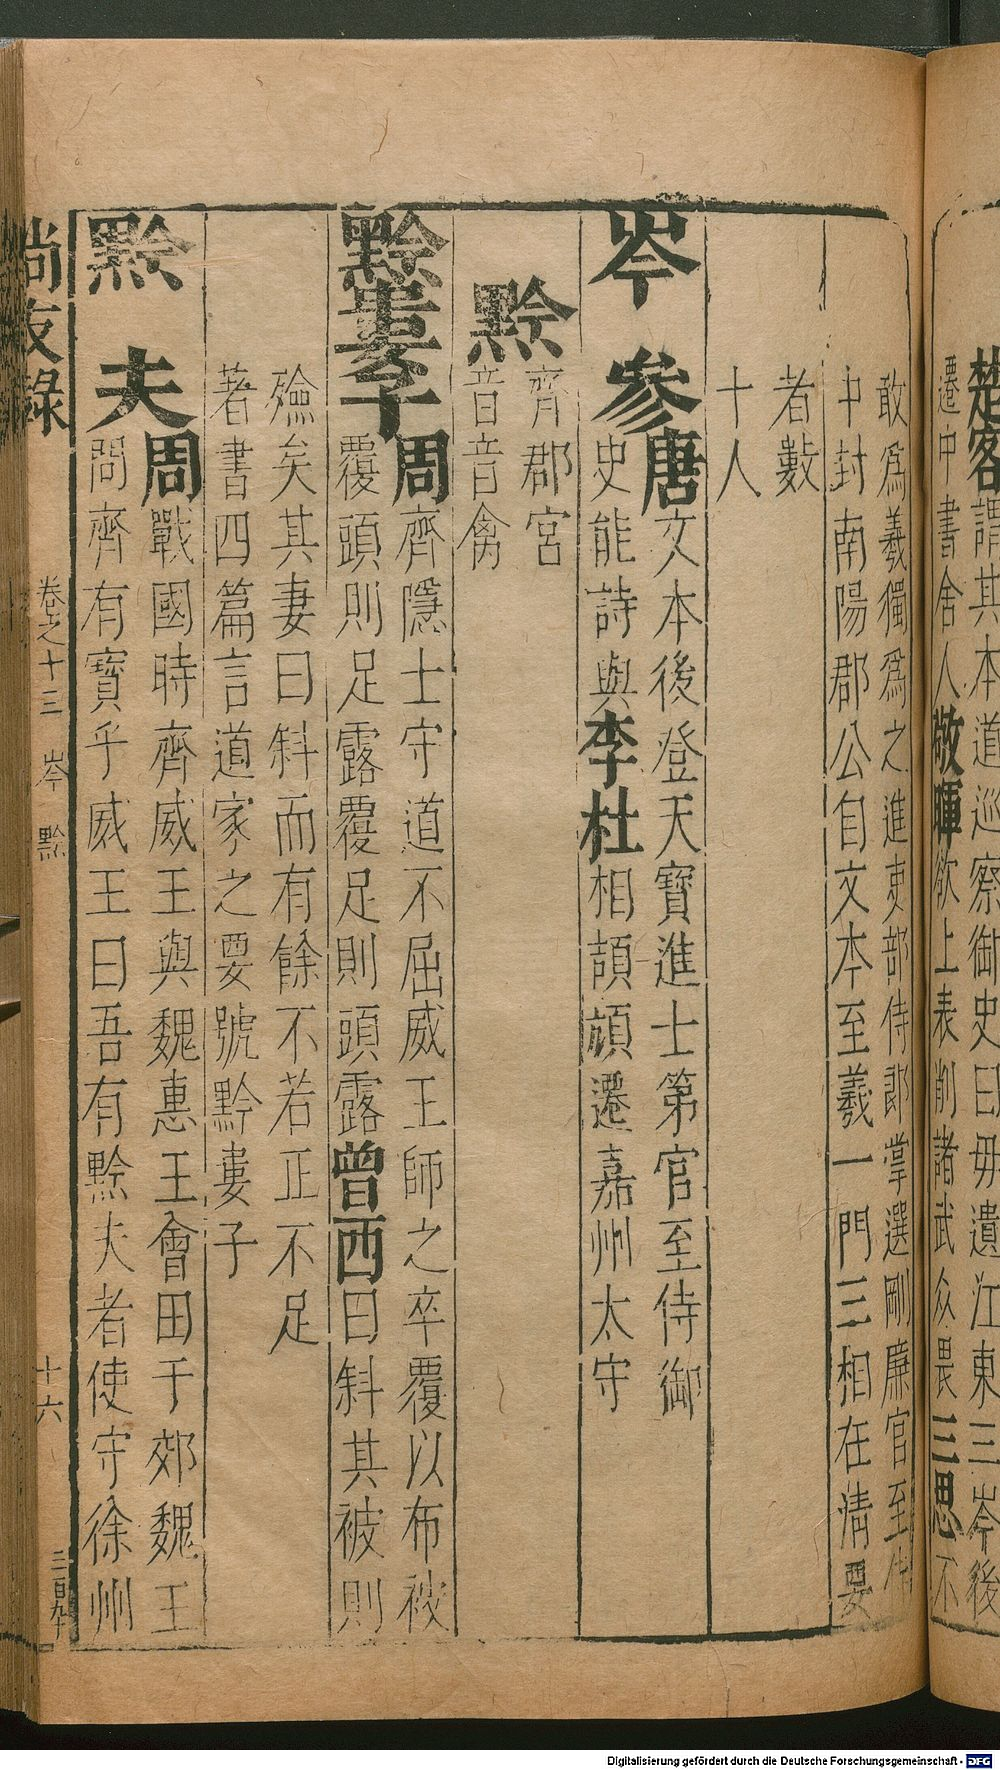 楚客謂其本道巡察御史曰毋遺江東三岑後
遷中書舍人敬暉欲上表削諸武众畏三思不
敢爲羲獨爲之進吏部侍郎掌選剛廉官至侍
中封南陽郡公自文本至羲一門三相在淸要
者數
十人
岑參唐文本後登天寶進士第官至侍御
史能詩與李杜相頡頏遷嘉州太守
黔齊郡宮
音音禽
黔婁子周齊隱士守道不屈威王師之卒覆以布被
覆頭則足露覆足則頭露曾西曰斜其被則
殮矣其妻曰斜而有餘不若正不足
著書四篇言道家之要號黔婁子
黔夫周戰國時齊威王與魏惠王會田于郊魏王
問齊有寶乎威王曰吾有黔夫者使守徐州
尚友錄 卷之十三 岑 黔 十六 二百九十
Digitalisierung gefördert durch die Deutsche Forschungsgemeinschaft - DFG